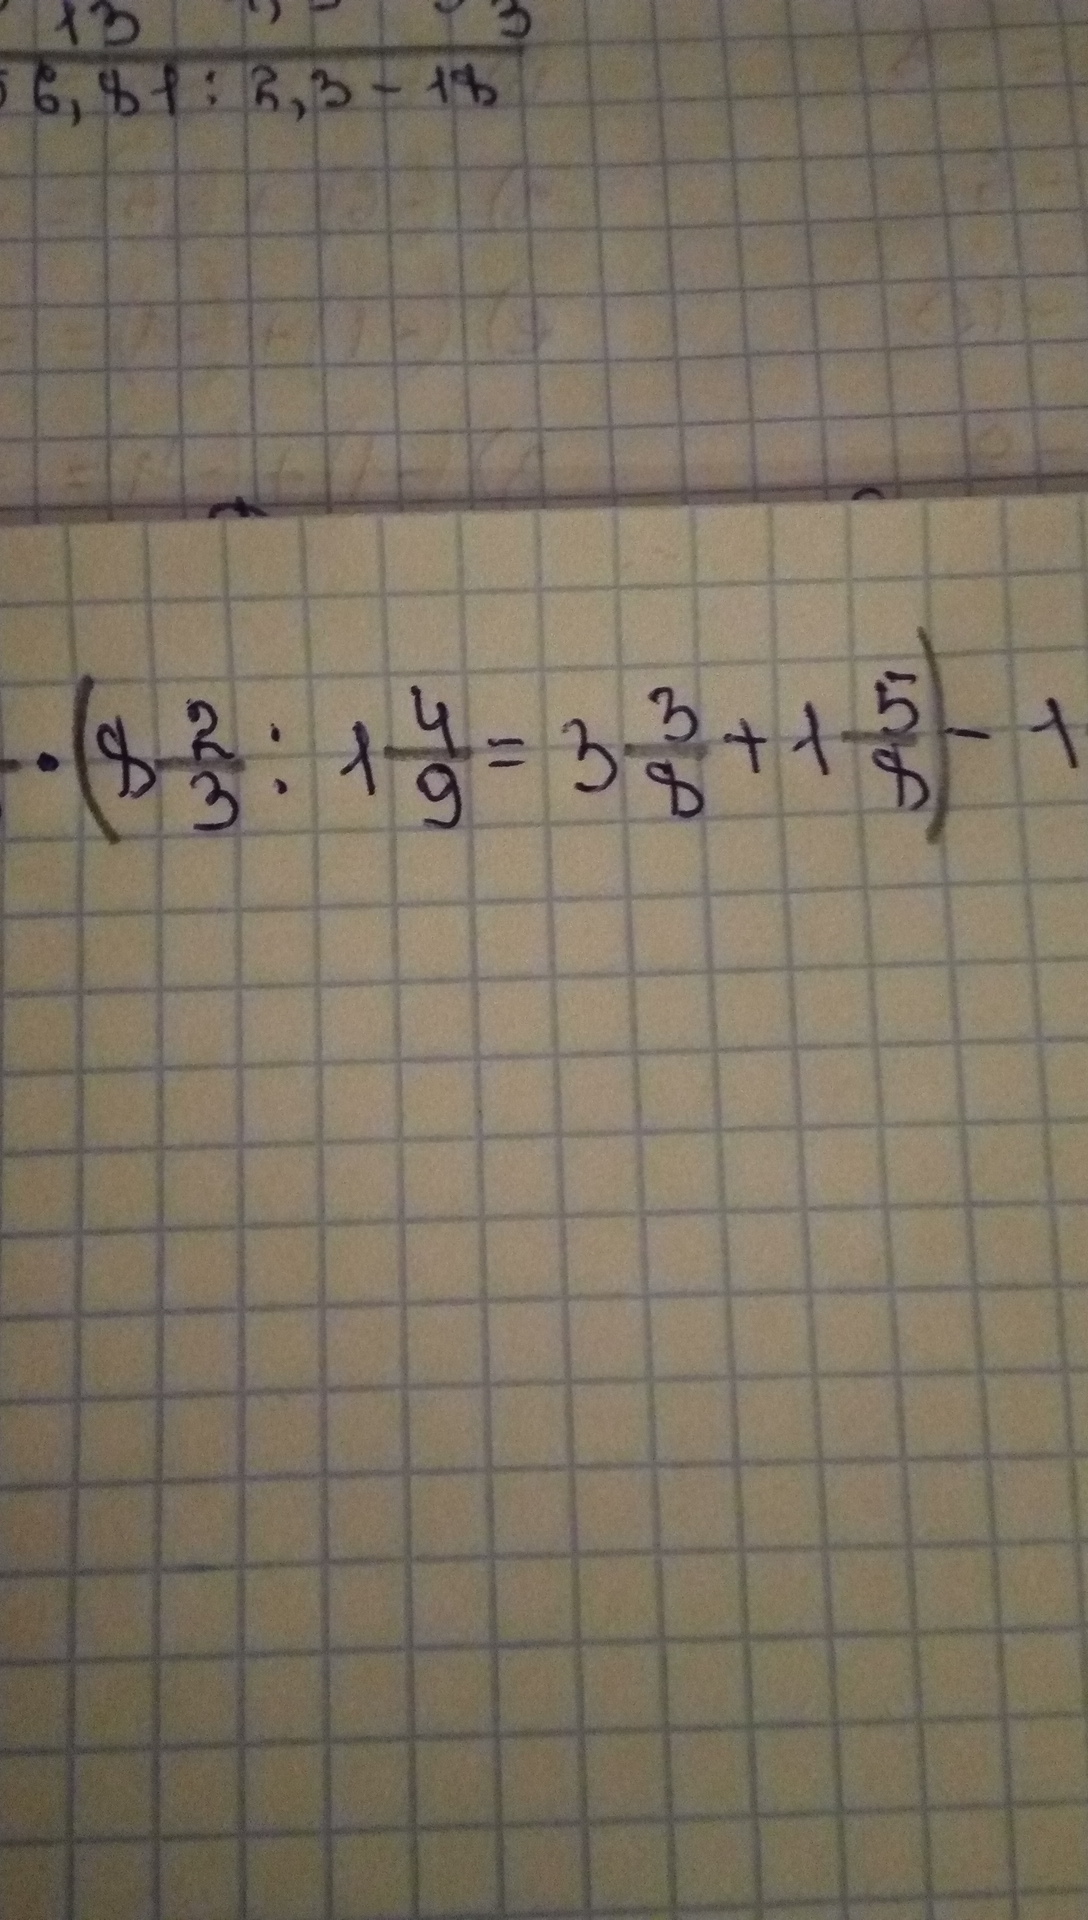 13 3
6,81 : 2,3 - 18
· (8 2/3 : 1 4/9 = 3 3/8 + 1 5/8) - 1